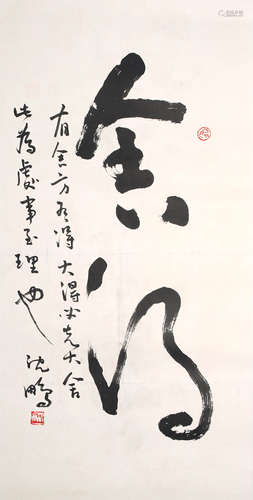 舍得
有舍方有得大得必先大舍
此为处事至理也
沈鹏